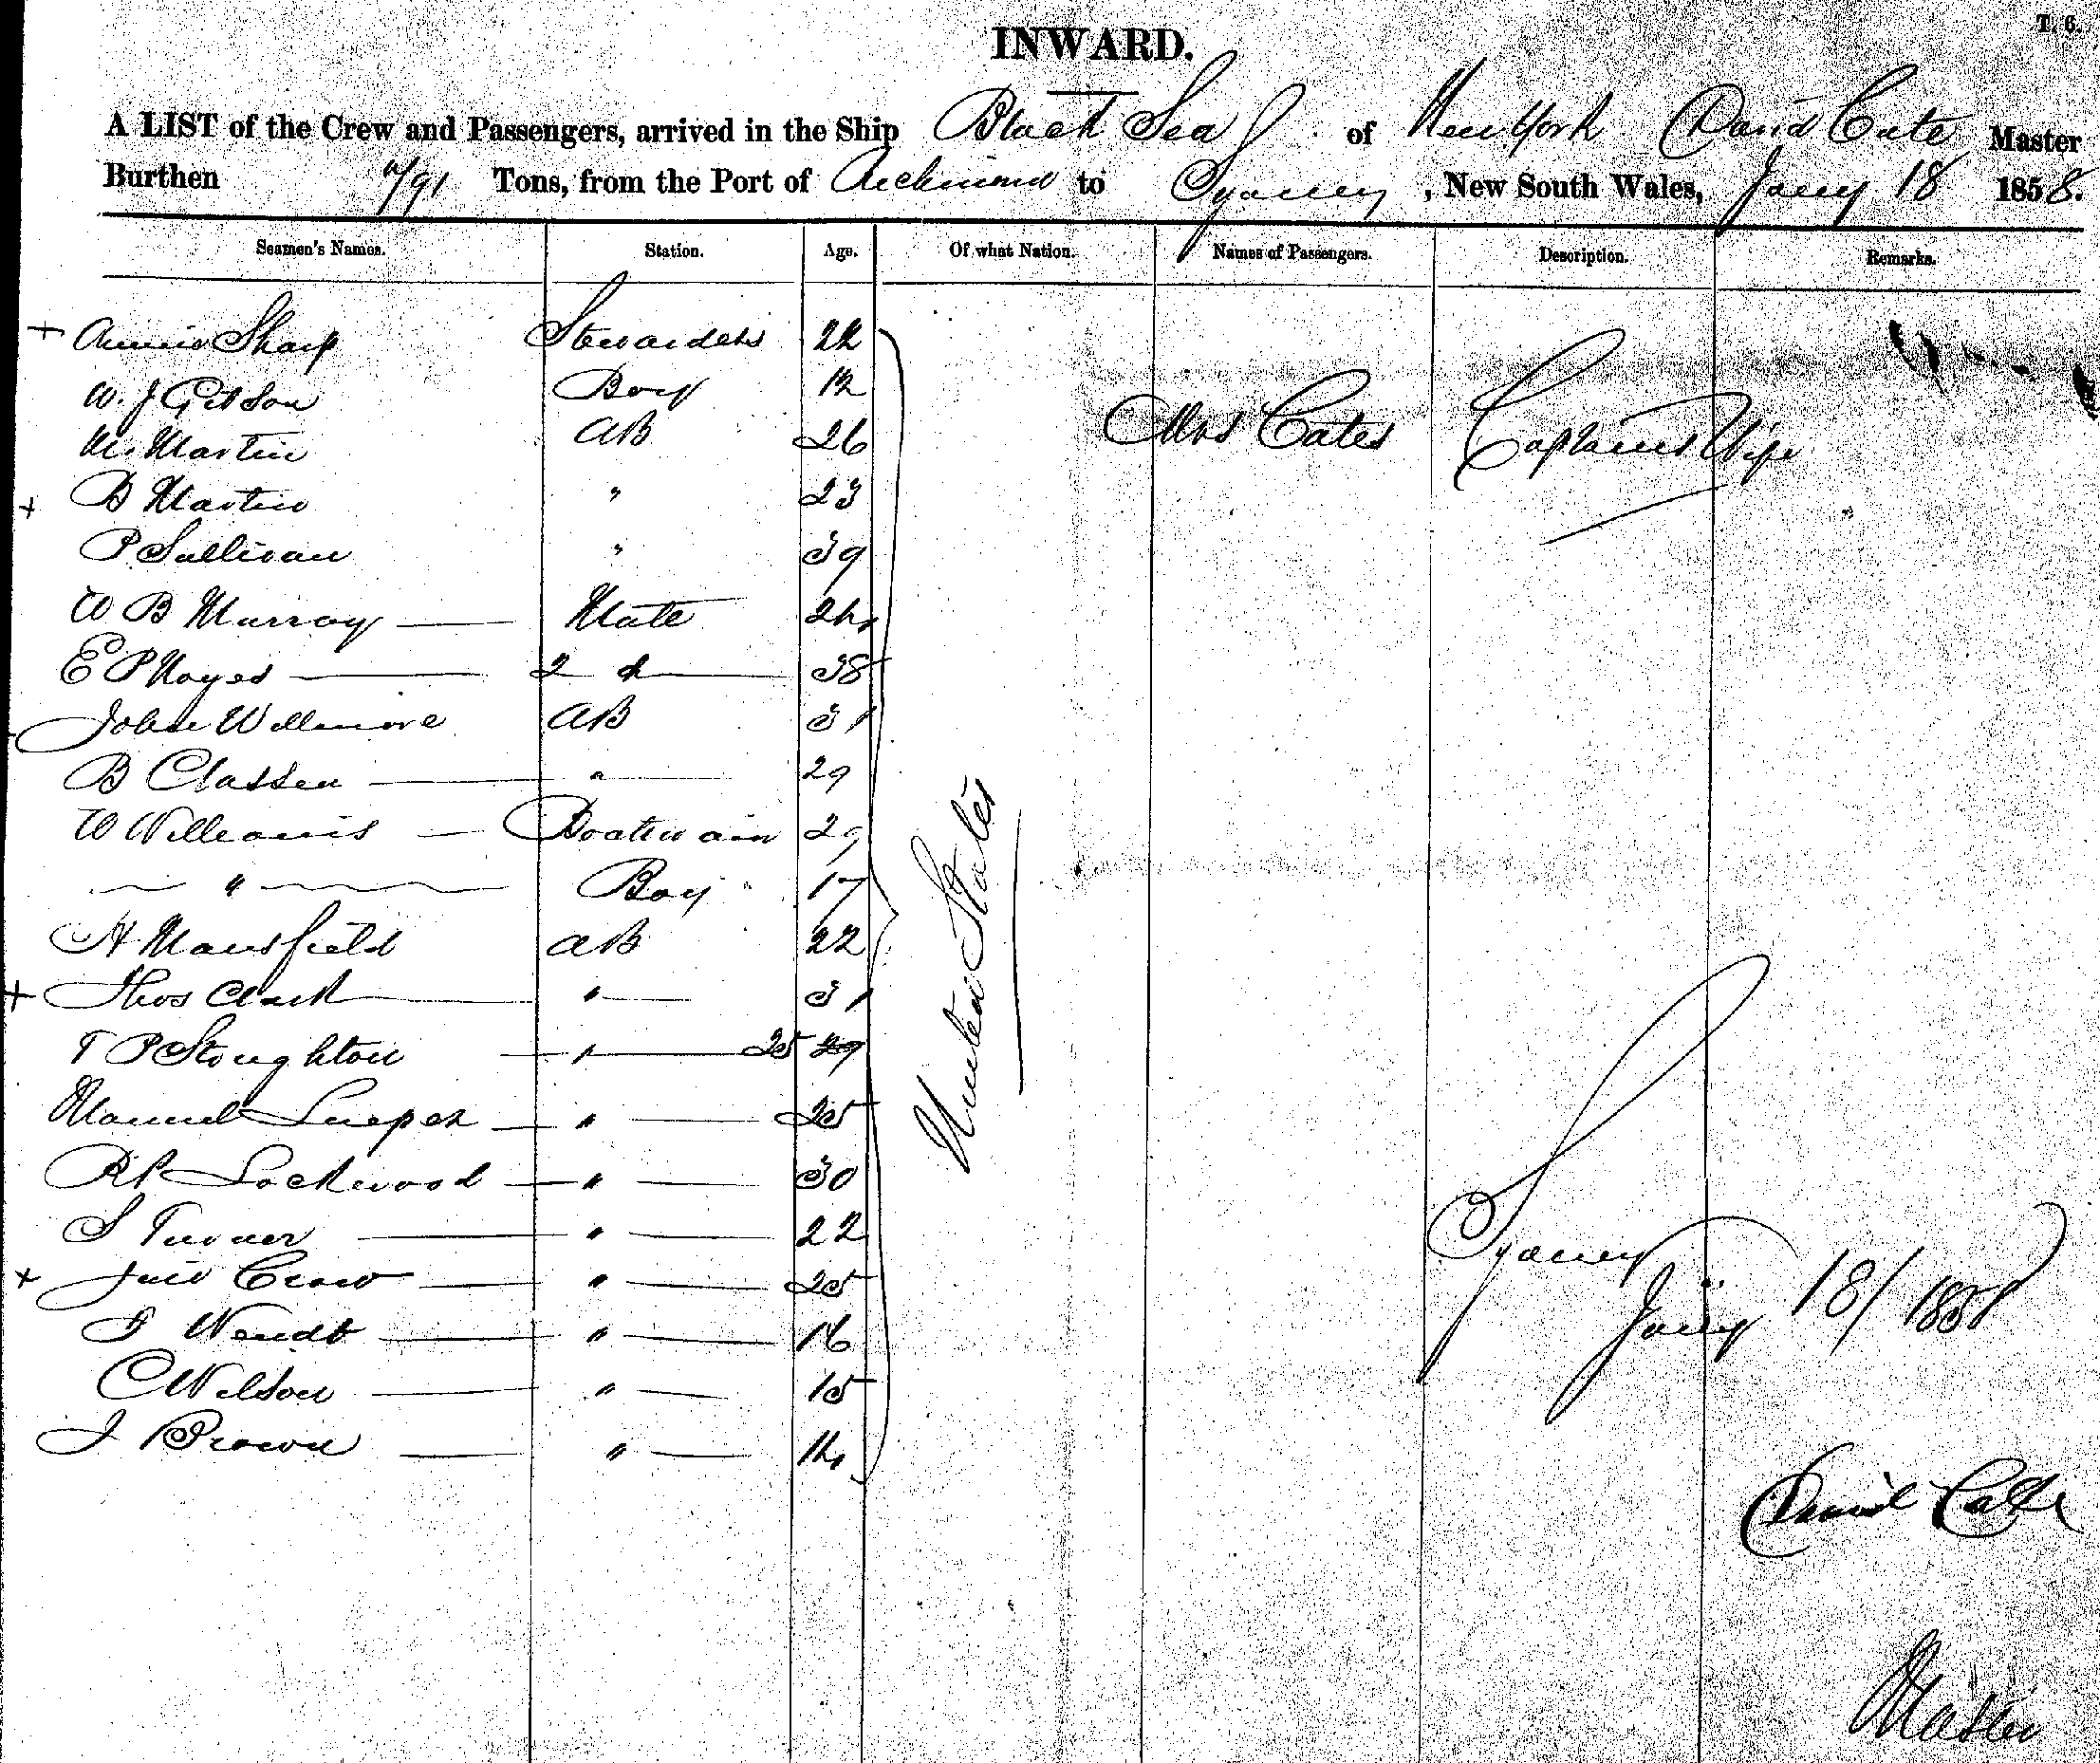 T. 6.
INWARD.
A LIST of the Crew and Passengers, arrived in the Ship Black Sea of New York David Cate Master
Burthen Tons, from the Port of Richmond to Sydney, New South Wales, Jany 18 1858.
Seamen's Names. Station. Age. Of what Nation. Names of Passengers. Description. Remarks.
+ Annie Sharp Stewardess 22
W. J Gibson Boy 12
M. Martin AB 26
Mrs Cates Captains Wife
+ B Martin " 23
P Sullivan " 39
W B Murray Mate 24
E P Noyes 2 d 38
John Willmore AB 31
B Classen " 29
W Williams Boatswain 29
" Boy 17
H Mansfield AB 22
+ Thos Clark " 31
T P Stoughton " 25 29
Manuel " 25
R P Lockwood " 30
S Turner " 22
+ Crow " 25
Wendt " 16
C Wilson " 15
J Brown " 14
United States
Sydney
Jany 18/1858
David Cate
Master